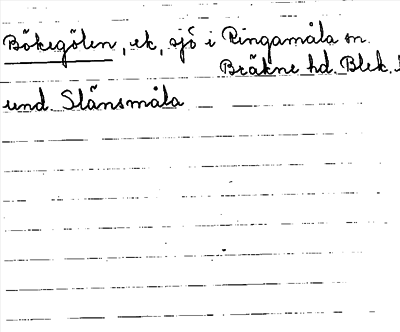 Bökegölen, ek, sjö i Ringamåla sn.
Bräkne hd. Blek. l
und. Slänsmåla